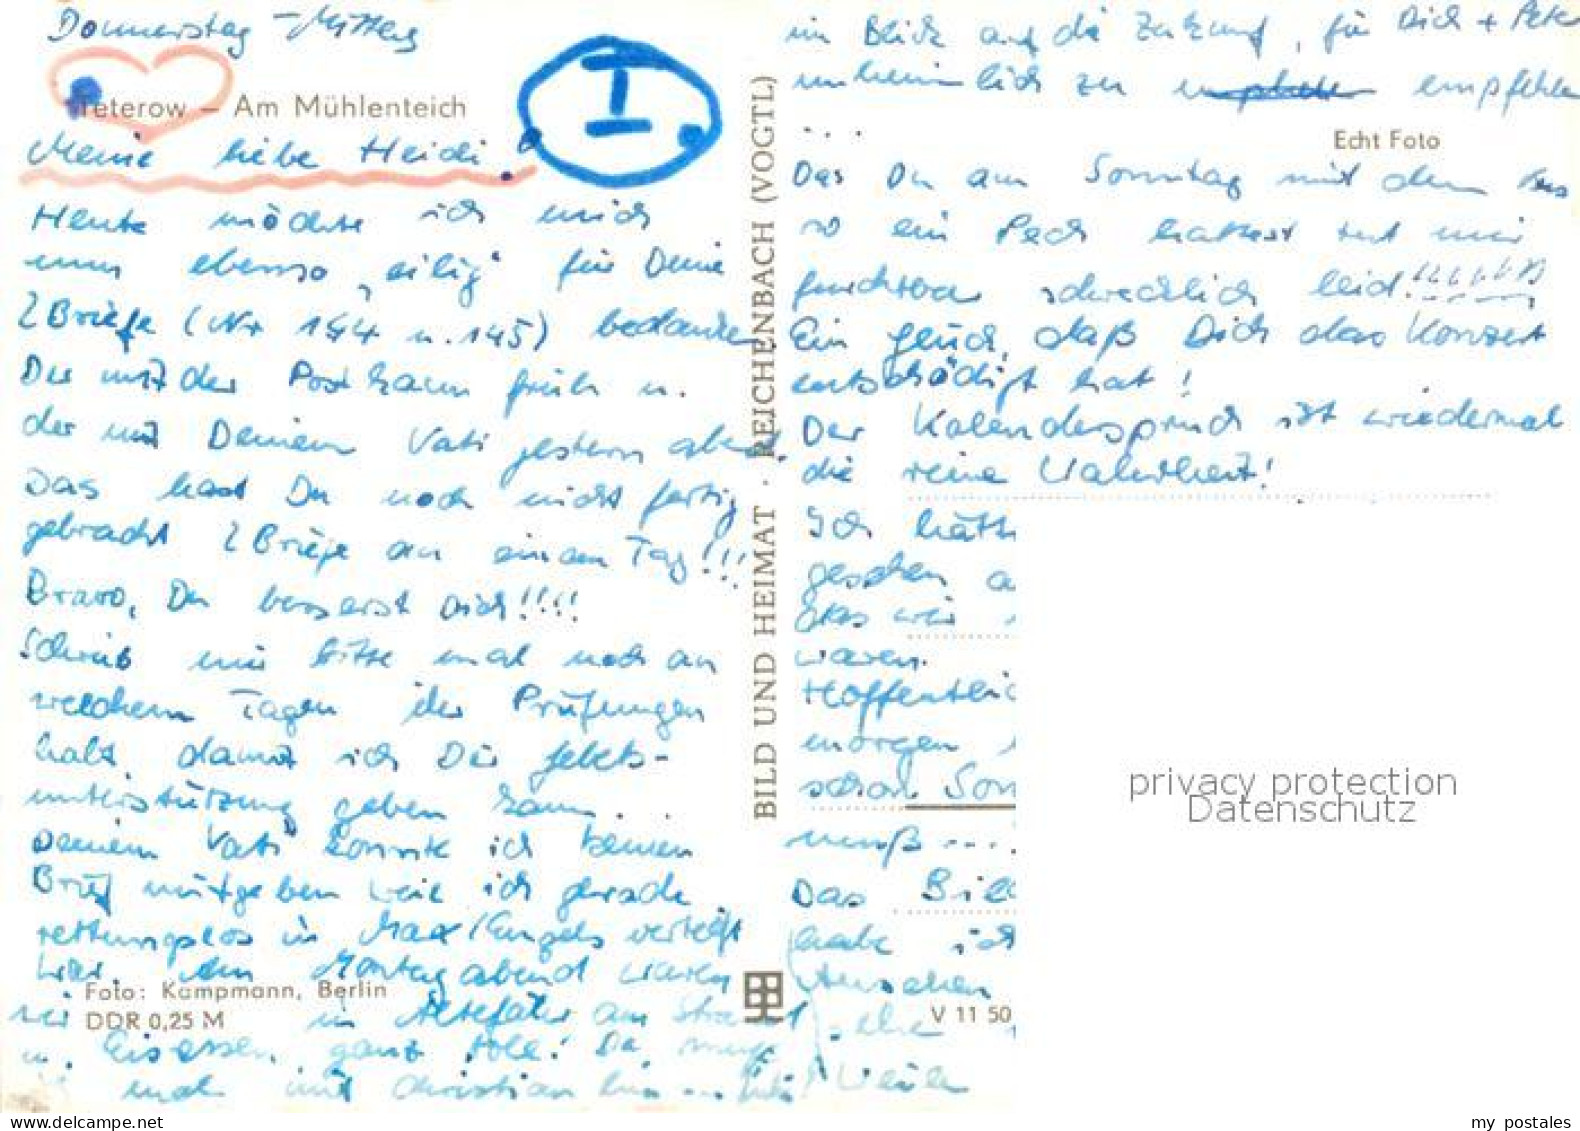 Donnerstag – Mittag
Teterow – Am Mühlenteich
I
Meine liebe Heidi!
Heute möchte ich mich
nun ebenso „eilig“ für Deine
2 Briefe (Nr 144 u. 145) bedanken
Der mit der Post kam früh u.
der mit Deinem Vati gestern abend.
Das hast Du noch nicht fertig
gebracht 2 Briefe an einem Tag!!!
Bravo, Du besserst Dich!!!!
Schreib mir bitte mal noch an
welchem Tagen ihr Prüfungen
habt, damit ich Dir Gebets-
unterstützung geben kann. . .
Deinem Vati konnte ich keinen
Brief mitgeben weil ich gerade
rettungslos in Marx/Engels vertieft
war. Am Montag abend waren
Foto: Kampmann, Berlin
wir in Altefähr am Strand
DDR 0,25 M
u. Eisessen, ganz toll! Da
mal mit Christian hin ...
BILD UND HEIMAT · REICHENBACH (VOGTL)
im Blick auf die Zukunft, für Dich + Peter
unheimlich zu empfehlen
...
Echt Foto
Das Du am Sonntag mit dem Bus
so ein Pech hattest tut mir
furchtbar schrecklich leid!!!!!!!
Ein Glück, daß Dich das Konzert
entschädigt hat!
Der Kalenderspruch ist wiedermal
die reine Wahrheit!
Ich hätt
gesehen a
wir
waren.
Hoffentlic
morgen
schon Son
muß ....
Das Bil
habe ich
Ansehen
ehe
V 11 50
privacy protection
Datenschutz
my postales
www.delcampe.net